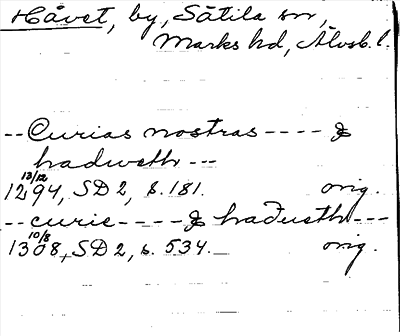 Håvet, by, Sätila sn,
Marks hd, Älvsb. l.
-- Curias nostras ---- &
hadweth ---
13/12
1294, SD 2, s. 181. orig.
-- curie ---- & hadueth ---
10/8
1308, SD 2, s. 534. orig.